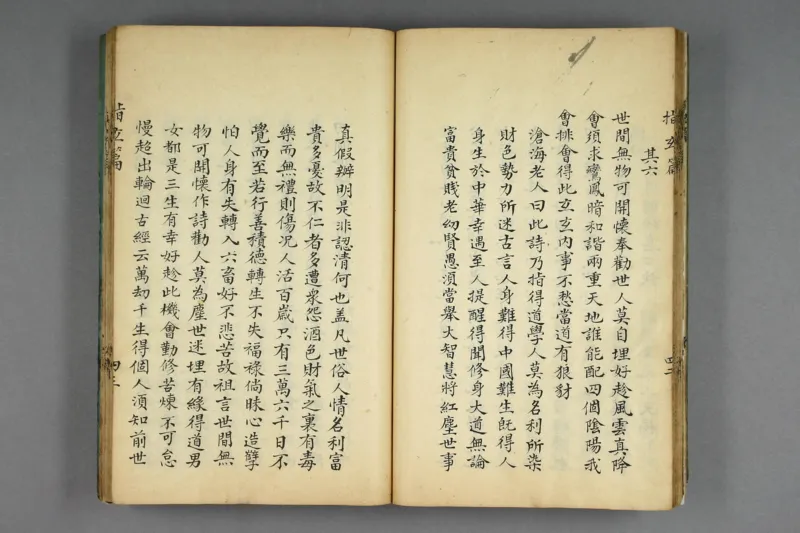 指玄篇
其六
世間無物可開懷奉勸世人莫自埋好趁風雲真際
會須求鸞鳳暗和諧兩重天地誰能配四個陰陽我
會排會得此玄玄內事不愁當道有狼豺
滄海老人曰此詩乃指得道學人莫為名利所染
財色勢力所迷古言人身難得中國難生旣得人
身生於中華幸遇至人提醒得聞修身大道無論
富貴貧賤老幼賢愚須當舉大智慧將紅塵世事
四二
真假辨明是非認清何也盖凡世俗人情名利富
貴多憂故不仁者多遭衆怨酒色財氣之裏有毒
樂而無禮則傷況人活百歲只有三萬六千日不
覺而至若行善積德轉生不失福祿倘昧心造孽
怕人身有失轉入六畜好不悲苦故祖言世間無
物可開懷作詩勸人莫為塵世迷埋有緣得道男
女都是三生有幸好趁此機會勤修苦煉不可怠
慢超出輪迴古經云萬刧千生得個人須知前世
指玄篇
四三